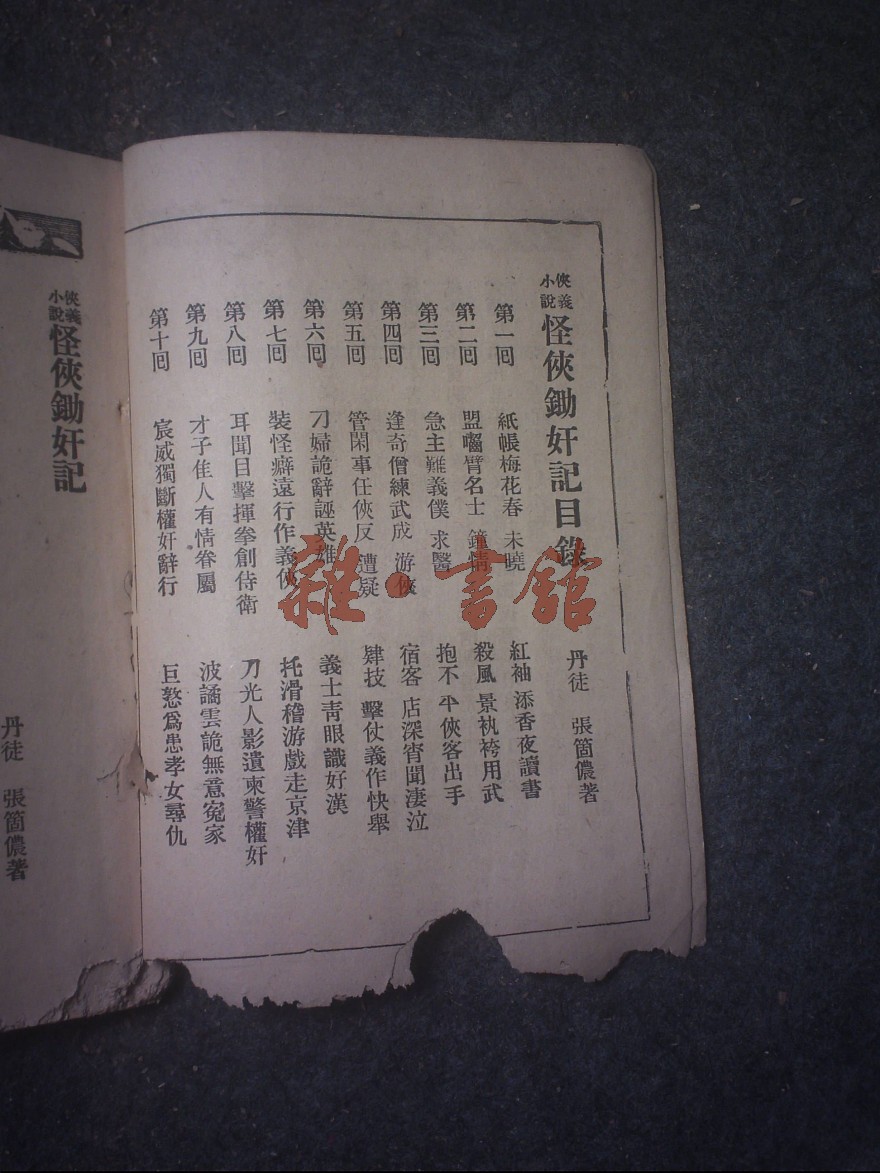 俠義小說 怪俠鋤奸記目錄
丹徒 張箇儂著
第一回 紙帳梅花春未曉 紅袖添香夜讀書
第二回 盟囓臂名士鐘情 殺風景紈袴用武
第三回 急主難義僕求醫 抱不平俠客出手
第四回 逢奇僧練武成游俠 宿客店深宵聞淒泣
第五回 管閑事任俠反遭疑 肄技擊仗義作快舉
第六回 刀婦詭辭誣英雄 義士青眼識好漢
第七回 裝怪癖遠行作義俠 托滑稽游戲走京津
第八回 耳聞目擊揮拳創侍衛 刀光人影遺柬警權奸
第九回 才子佳人有情眷屬 波譎雲詭無意冤家
第十回 宸威獨斷權奸辭行 巨憝爲患孝女尋仇
俠義小說 怪俠鋤奸記
丹徒 張箇儂著
雜·書館